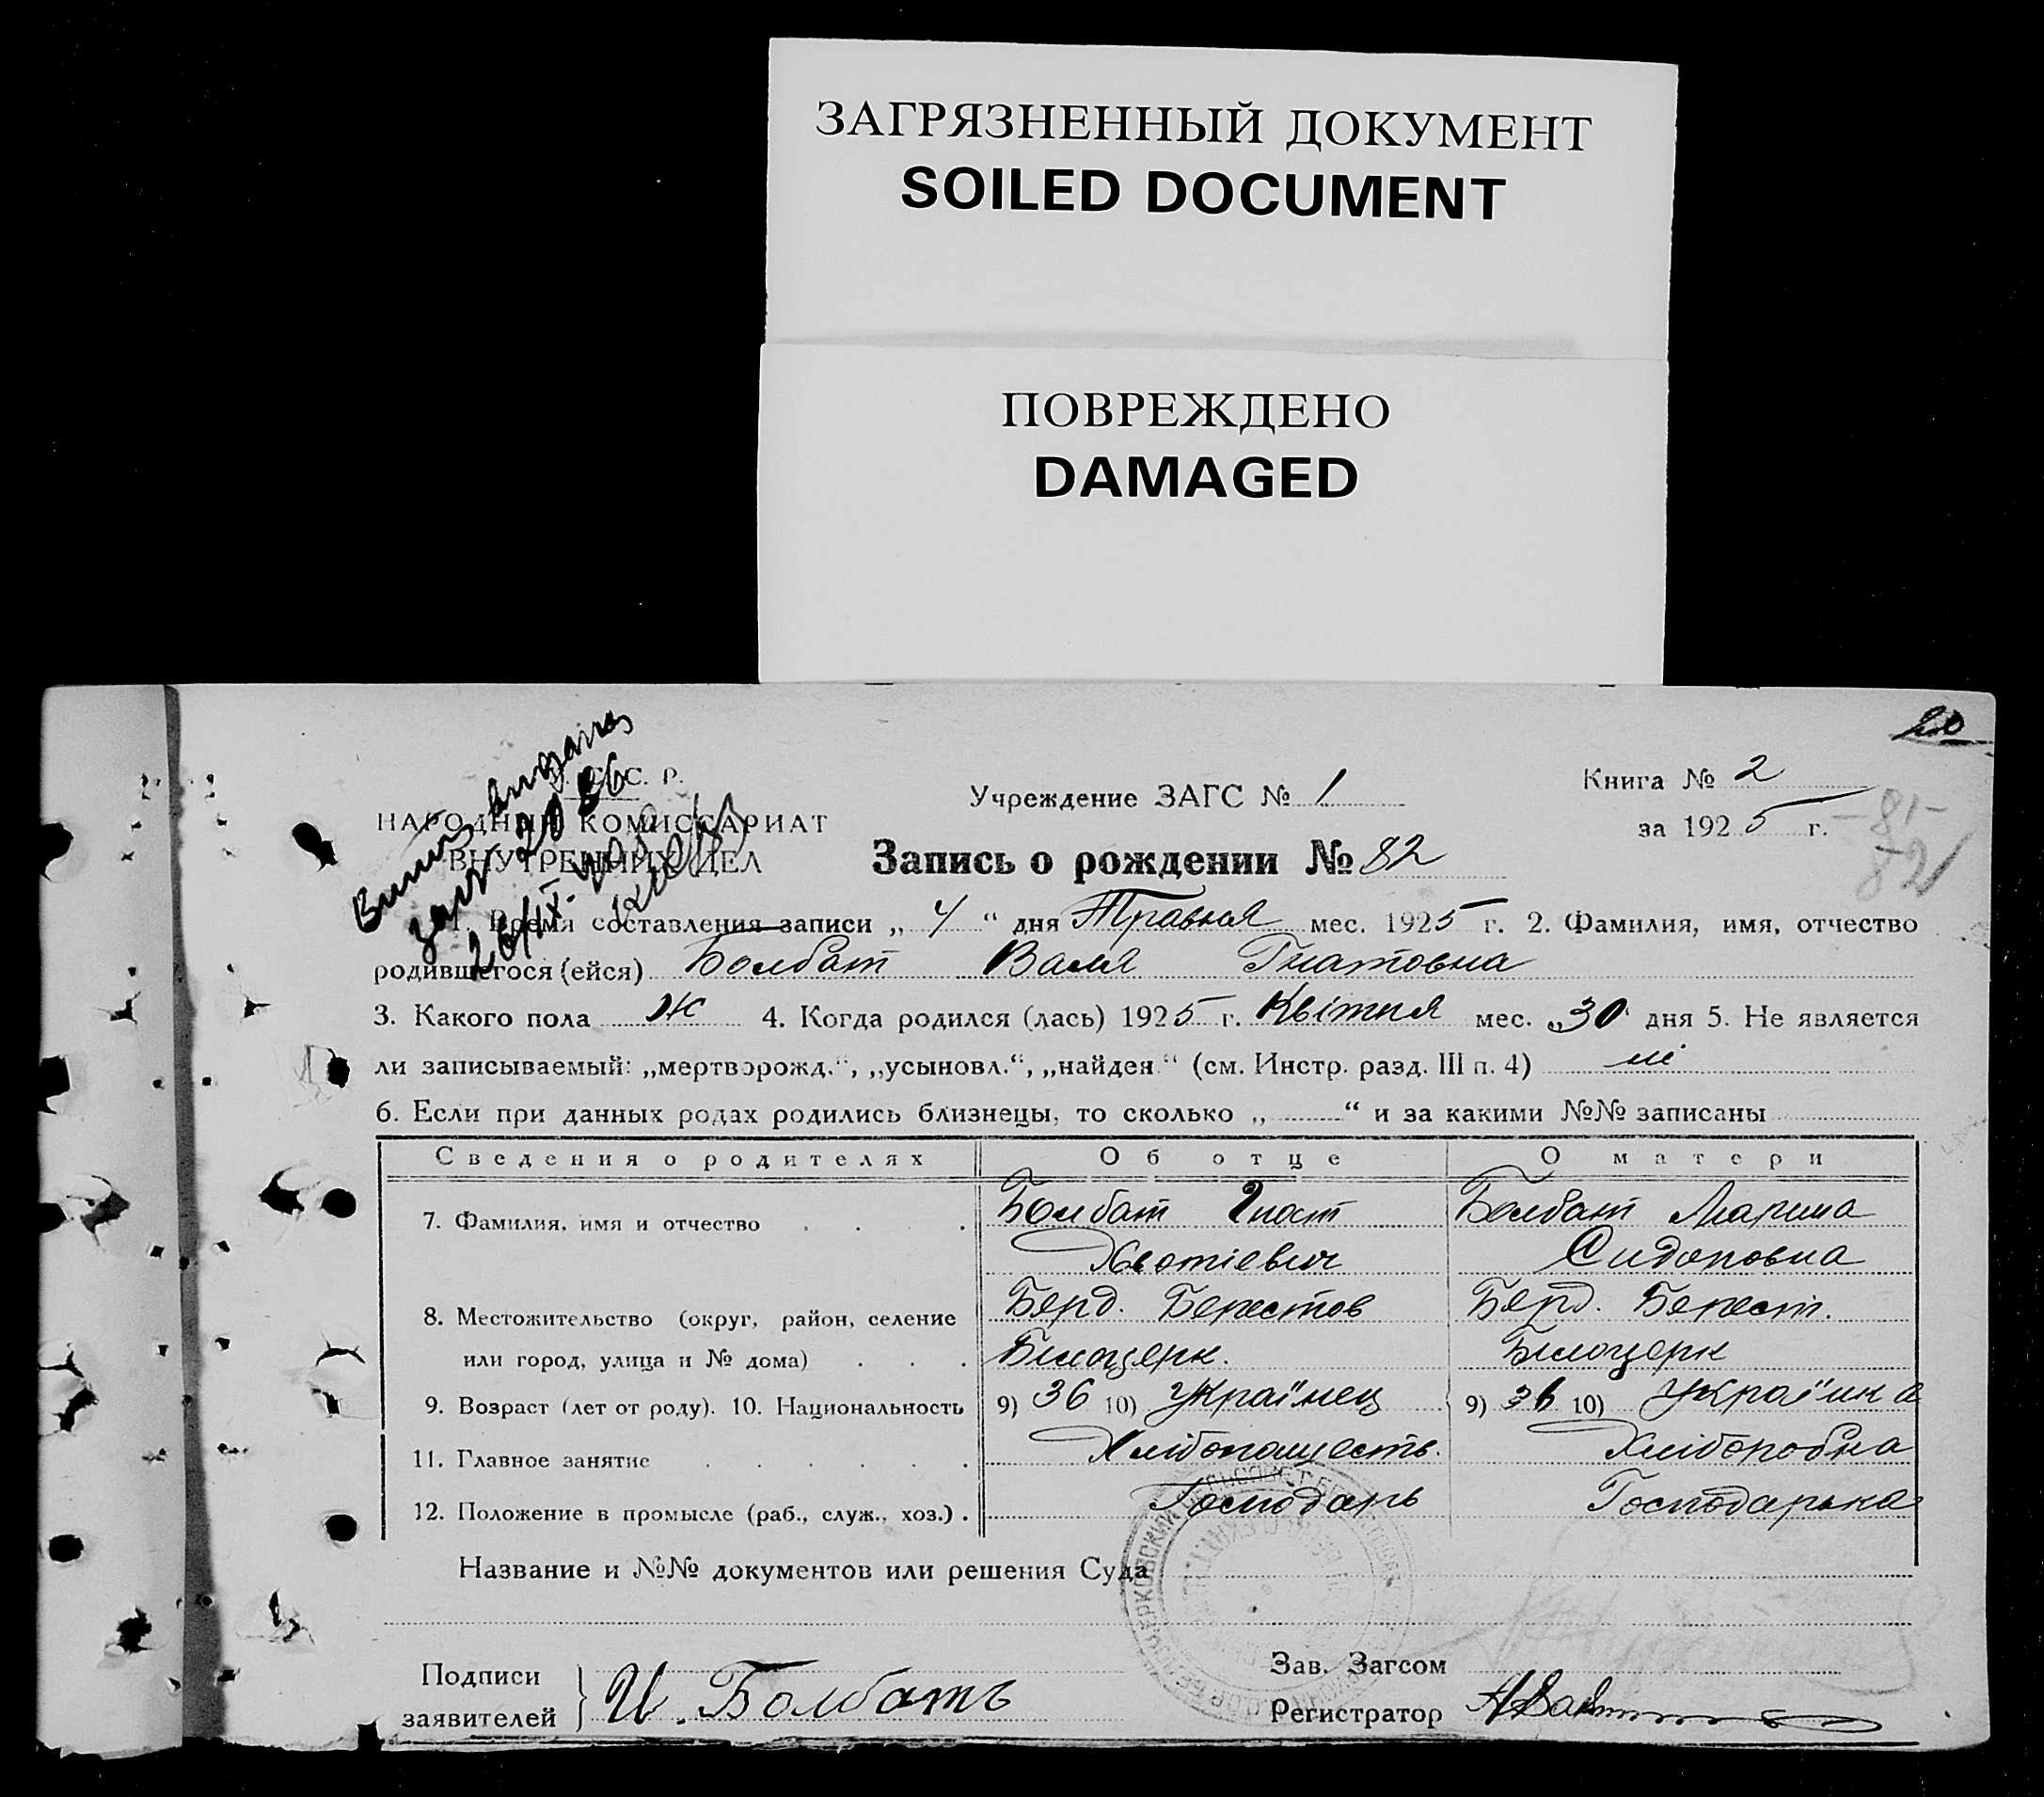 ЗАГРЯЗНЕННЫЙ ДОКУМЕНТ
SOILED DOCUMENT
ПОВРЕЖДЕНО
DAMAGED
С. Р.
НАРОДНЫЙ КОМИССАРИАТ
ВНУТРЕННИХ ДЕЛ
Учреждение ЗАГС № 1
Книга № 2
за 1925 г.
82
Запись о рождении № 82
1. Время составления записи „4“ дня Травня мес. 1925 г. 2. Фамилия, имя, отчество
родившегося (ейся) Болбат Валя Гнатовна
3. Какого пола Ж 4. Когда родился (лась) 1925 г. Квітня мес. „30“ дня 5. Не является
ли записываемый: „мертворожд.“, „усыновл.“, „найден“ (см. Инстр. разд. III п. 4) ні
6. Если при данных родах родились близнецы, то сколько „ “ и за какими №№ записаны
Сведения о родителях Об отце О матери
7. Фамилия, имя и отчество . . . Болбат Гнат Болбат Марина
Сидоровна
8. Местожительство (округ, район, селение Берд. Берестов Берд. Берест.
или город, улица и № дома) . . . Білоцерк. Білоцерк
9. Возраст (лет от роду). 10. Национальность 9) 36 10) Українец 9) 36 10) Українка
11. Главное занятие . . . . . . Хлібопашеств. Хліборобка
12. Положение в промысле (раб., служ., хоз.) . Господарь Господарька
Название и №№ документов или решения Суда
Подписи
заявителей } И. Болбатъ
Зав. Загсом
Регистратор